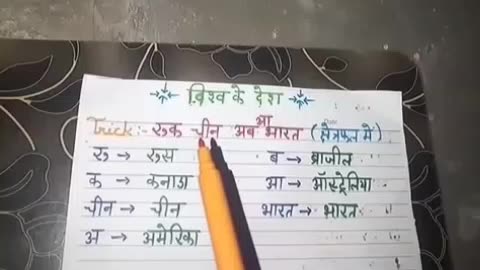 विश्व के देश
Trick:- रुक चीन अब आ भारत (क्षेत्रफल में)
रु → रुस
ब → ब्राजील
क → कनाडा
आ → ऑस्ट्रेलिया
चीन → चीन
भारत → भारत
अ → अमेरिका